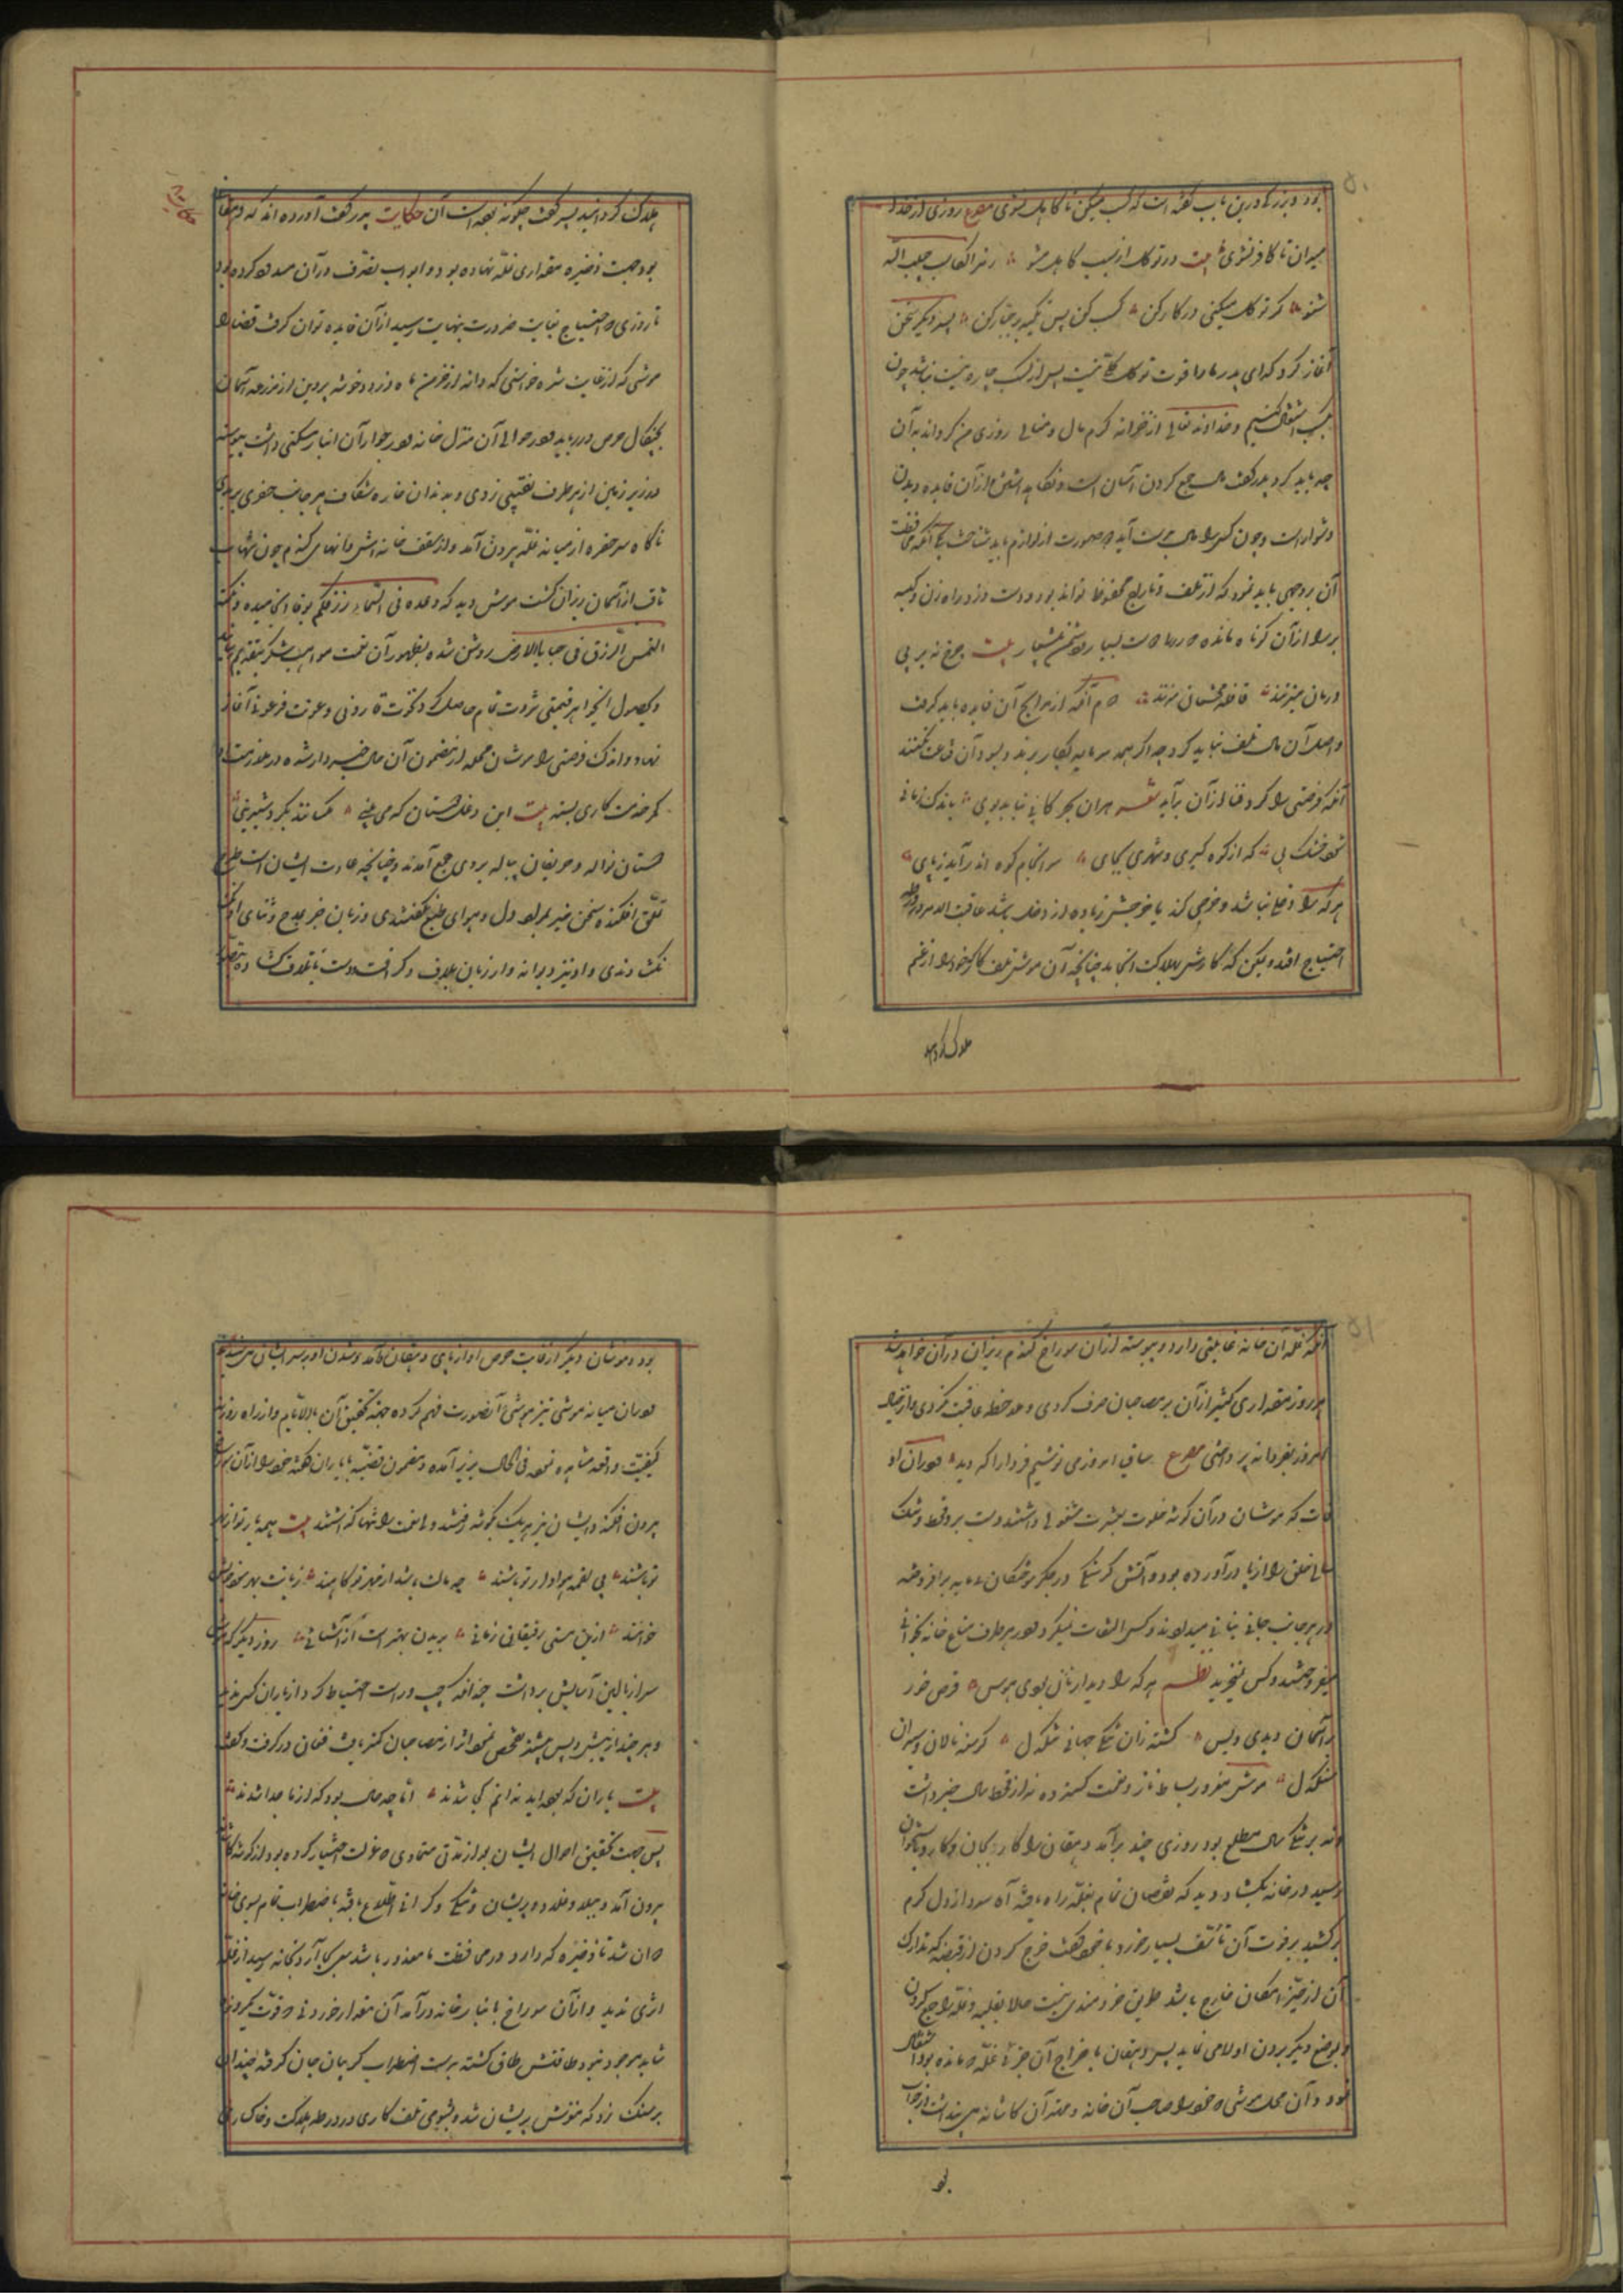 بود و بزرگی درین باب گفته است که کسب میکن تا کاهل نشوی مصرع روزی از خدا
میدان تا کافر نشوی بیت در توکل از سبب کاهل مشو رمز الکاسب حبیب الله
شنو گر توکل میکنی در کار کن کسب کن پس تکیه بر جبار کن پسر دیگر سخن
آغاز کرد که ای پدر ما را قوت توکل کلی نیست پس از کسب چاره نیست چون
بکسب اشتغال کنیم و خداوند تعالی از خزانه کرم مال و منالی روزی من گرداند بآن
چه باید کرد پدر گفت مال جمع کردن آسان است و نگاه داشتن و از آن فایده دیدن
دشوار است و چون کسی را مال بدست آید دو صورت از لوازم باید شناخت یکی آنکه محافظت
آن بر وجهی باید نمود که از تلف و تاراج محفوظ تواند بود و دست دزد و راه زن و کیسه
بر را از آن کوتاه مانده که زر را دوست بسیار و دشمن بیشمار بیت چرخ نه بر بی
درمان میزند قافله محتشمان میزند دوم آنکه از مرابح آن فایده باید گرفت
و اصل آن مال تلف نباید کرد چه اگر همه سرمایه بکار برند و بسود آن قناعت نکنند
آنکه فرصتی را گرد فنا از آن برآید شعر هران بحر کابی نیاید بوی باندک زمانی
شود خشک پی که از کوه گیری و ننهی بجای سرانجام کوه اندر آید ز پای
هر که را دخل نباشد و خرجی کند یا خرجش زیاده از دخل باشد عاقبت الامر در ورطه
احتیاج افتد و یمکن که کارش بهلاکت انجامد چنانچه آن موش تلف کار خود را از غم
هلاک گردانید
هلاک گردانید پسر گفت چگونه بوده است آن حکایت پدر گفت آورده اند که دهقانی
بود جهت ذخیره مقداری غله نهاده بود و ابواب تصرف در آن مسدود کرده بود
تا روزی که احتیاج بغایت و ضرورت بنهایت رسید از آن فایده توان گرفت قضا را
موشی که از غایت شره خواستی که دانه از خرمن ماه دزدد و خوشه پروین از مزرعه آسمان
بچنگال حرص در رباید در حوالی آن منزل خانه و در جوار آن انبار مسکنی داشت پیوسته
در زیر زمین از هر طرف نقبی زدی و بدندان خاره شکاف هر جانب حفری بریدی
ناگاه سر حفره از میانه غله بیرون آمد و از سقف خانه اش دانهای گندم چون شهاب
ثاقب از آسمان ریزان گشت موش دید که وعده فی السماء رزقکم بوفا انجامیده و نکته
التمس الرزق فی خبایا الارض روشن شده بظهور آن نعمت مواهب شکر بتقدیم رسانید
و بحصول آن جواهر قیمتی ثروت تمام حاصل کرد و نخوت قارونی و رعونت فرعونی آغاز
نهاد و اندک فرصتی را موشان محله از مضمون آن حال خبردار شده در ملازمت او
کمر خدمتکاری بستند بیت این دغل دوستان که می بینی مگسانند گرد شیرینی
دوستان نواله و حریفان پیاله بروی جمع آمدند و چنانچه عادت ایشان است طرح
تملق افکنده سخن جز بمراد دل و هوای طبع نگفتندی و زبان جز بمدح و ثنای او
نگشادندی و او نیز دیوانه وار زبان بلاف و گزاف و دست باتلاف گشاده بتصور
آنکه غله آن خانه غایتی ندارد و پیوسته از آن سوراخ گندم ریزان در آن خواهد شد
هر روز مقداری کثیر از آن بر مصاحبان صرف کردی و ملاحظه عاقبت نکردی و از تغییر
امروز بفردا نپرداختی مصرع ساقی امروز می نوشیم فردا را که دید در آن اوقات
که موشان در آن گوشه خلوت بعشرت مشغولی داشتند دست برد قحط و تنگ
سالی خلق را از پا درآورده بود و آتش گرسنگی در جگر سوختگان بی مایه برافروخته
در هر جانب جانی بنانی میدادند و کس التفات نمیکرد و در هر طرف متاع خانه بخوانی
میفروختند و کس نمیخرید نظم هر که را دیدار نان بودی هوس قرص خور
بر آسمان دیدی و بس گشته زان تنگی جهانی تنگدل گرسنه نالان و سیران
سنگدل موش مغرور بساط ناز و نعمت گسترده نه از قحط سال خبر داشت
و نه بر تنگی سال مطلع بود روزی چند برآمد دهقان را کار بجان و کارد باستخوان
رسید در خانه بگشاد دید که نقصان تمام بغله راه یافته آه سرد از دل گرم
برکشید بر فوت آن تأسف بسیار خورد با خود گفت جزع کردن در قضیه که تدارک
آن از حیز امکان خارج باشد طریق خردمندی نیست حالا بقیه غله را جمع کردن
و بموضع دیگر بردن اولی می نماید پس دهقان باخراج آن جزئی غله که مانده بود اشتغال
نمود و در آن محل موشی که خود را صاحب آن خانه و مهتر آن کاشانه می پنداشت در خواب
بو
بود و موشان دیگر از غایت حرص آواز پای دهقان و آمد و شدن او بر سر ایشان
در آن میانه موشی تیز هوش آنصورت فهم کرده جهت تحقیق آن بالای بام و از راه روزنه
کیفیت واقعه مشاهده نمود فی الحال بزیر آمده و مضمون قضیه با یاران گفته خود را از آن سوراخ
بیرون افکند و ایشان نیز هر یک بگوشه رفتند و ولینعمت را تنها گذاشتند بیت همه یار تو از بهر
تو باشند پی لقمه هوادار تو باشند چو مالت باشد از مهر تو کاهند زیانت بهر سود خویش
خواهند ازین مشتی رفیقان زبانی بریدن بهتر است از آشنائی روز دیگر که موش
سر از بالین آسایش برداشت چندانکه چپ و راست احتیاط کرد از یاران کسی ندید
و هر چند از پیش و پس بیشتر تفحص نمود اثر از مصاحبان کمتر یافت فغان در گرفت و گفت
بیت یاران که بوده اند ندانم کجا شدند آیا چه حال بود که از ما جدا شدند
پس جهت تحقیق احوال ایشان بعد از مدتی متمادی که عزلت اختیار کرده بود از گوشه کاشانه
بیرون آمد و ببلا و غلا و پریشان و تنگی و گرانی اطلاع یافته باضطراب تمام بسوی خانه
روان شد تا ذخیره که دارد در محافظت آن معذور باشد سعی بجا آرد و بخانه رسید از غله
اثری ندید و از آن سوراخ بانبار خانه درآمد آن مقدار خوردنی که قوت یک روزه
شاید موجود نبود طاقتش طاق گشته بدست اضطراب گریبان جان گرفته چندان
بر سنگ زد که مغزش پریشان شد و بشومی تلف کاری در ورطه هلاکت و خاکساری